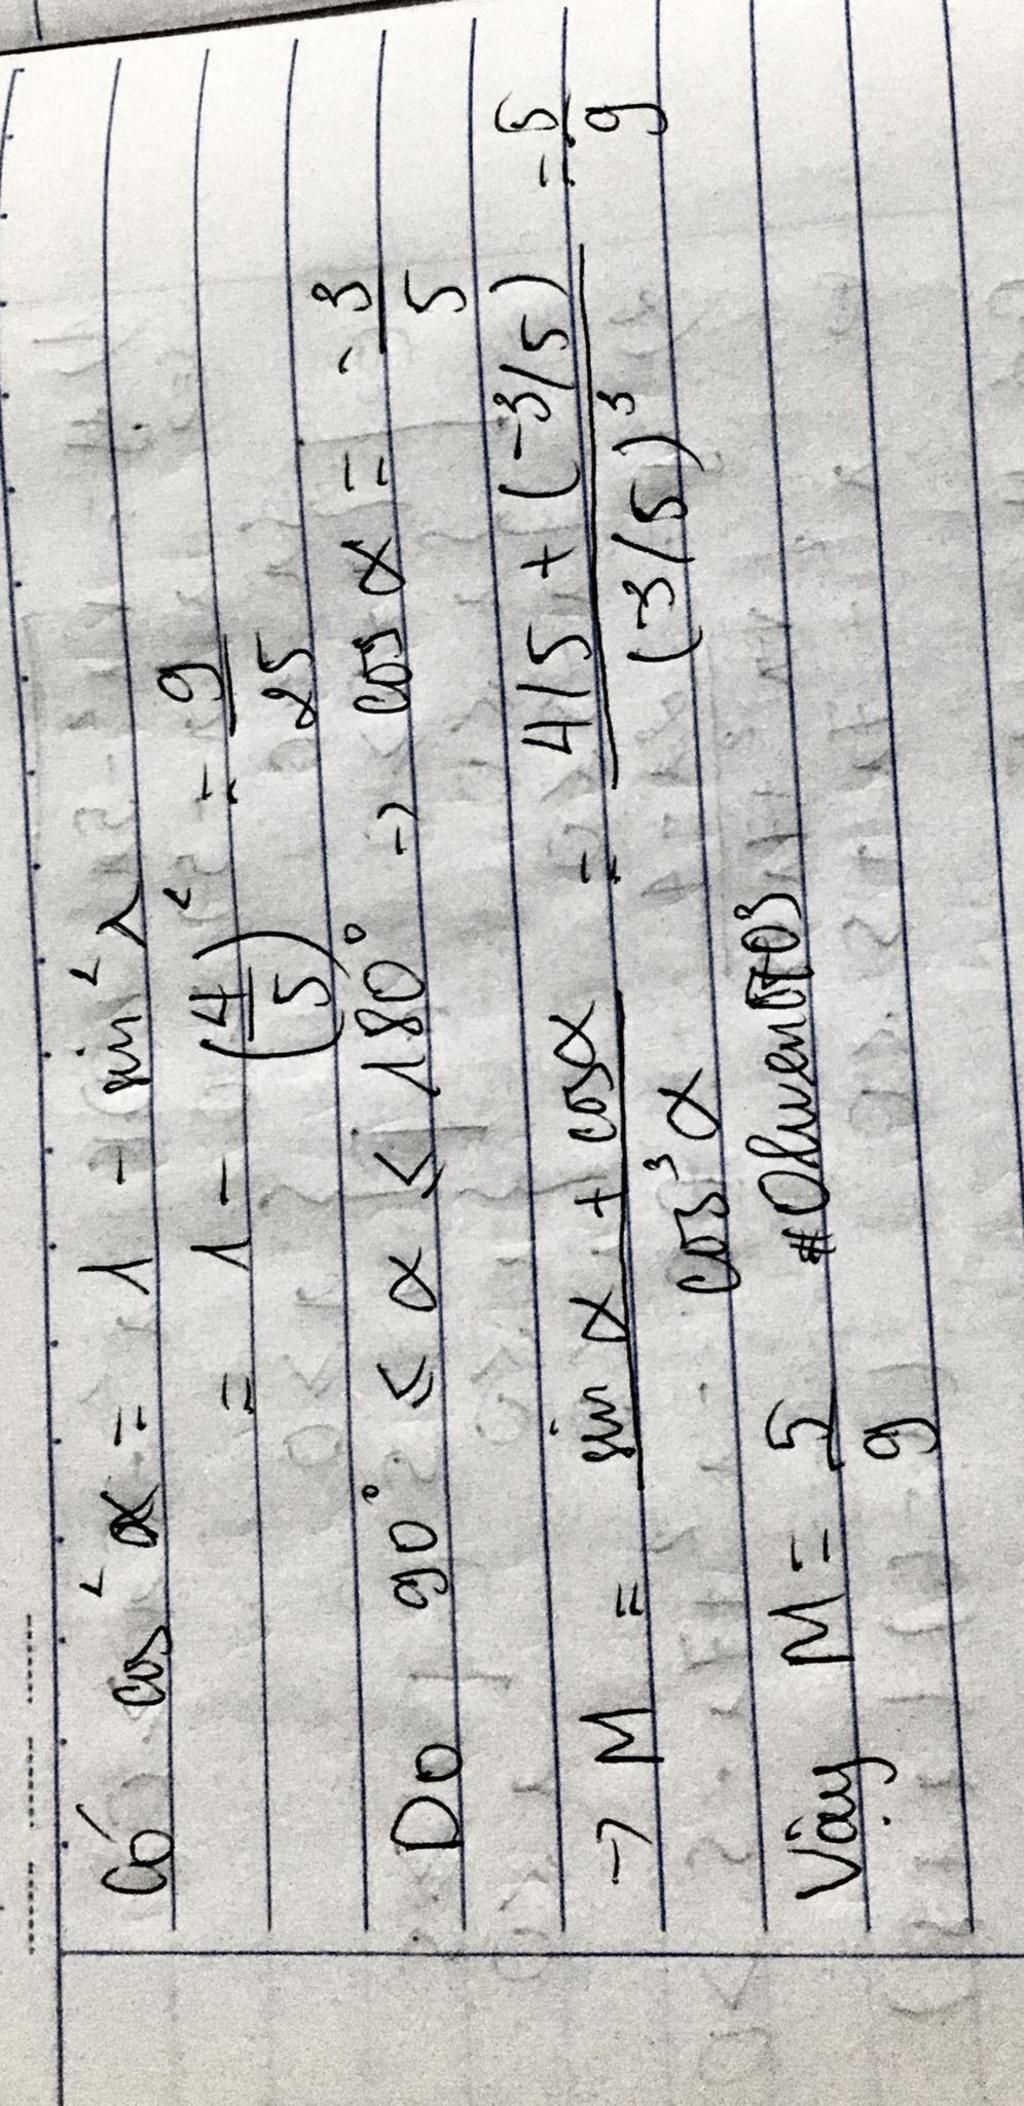 Có cos² α = 1 - sin² α
= 1 - (4/5)² = 9/25
Do 90° ≤ α ≤ 180° → cos α = -3/5
→ M = (sin α + cosα)/(cos³ α) = (4/5 + (-3/5))/((-3/5)³) = -5/9
Vậy M = 5/9 #Oluwen0703